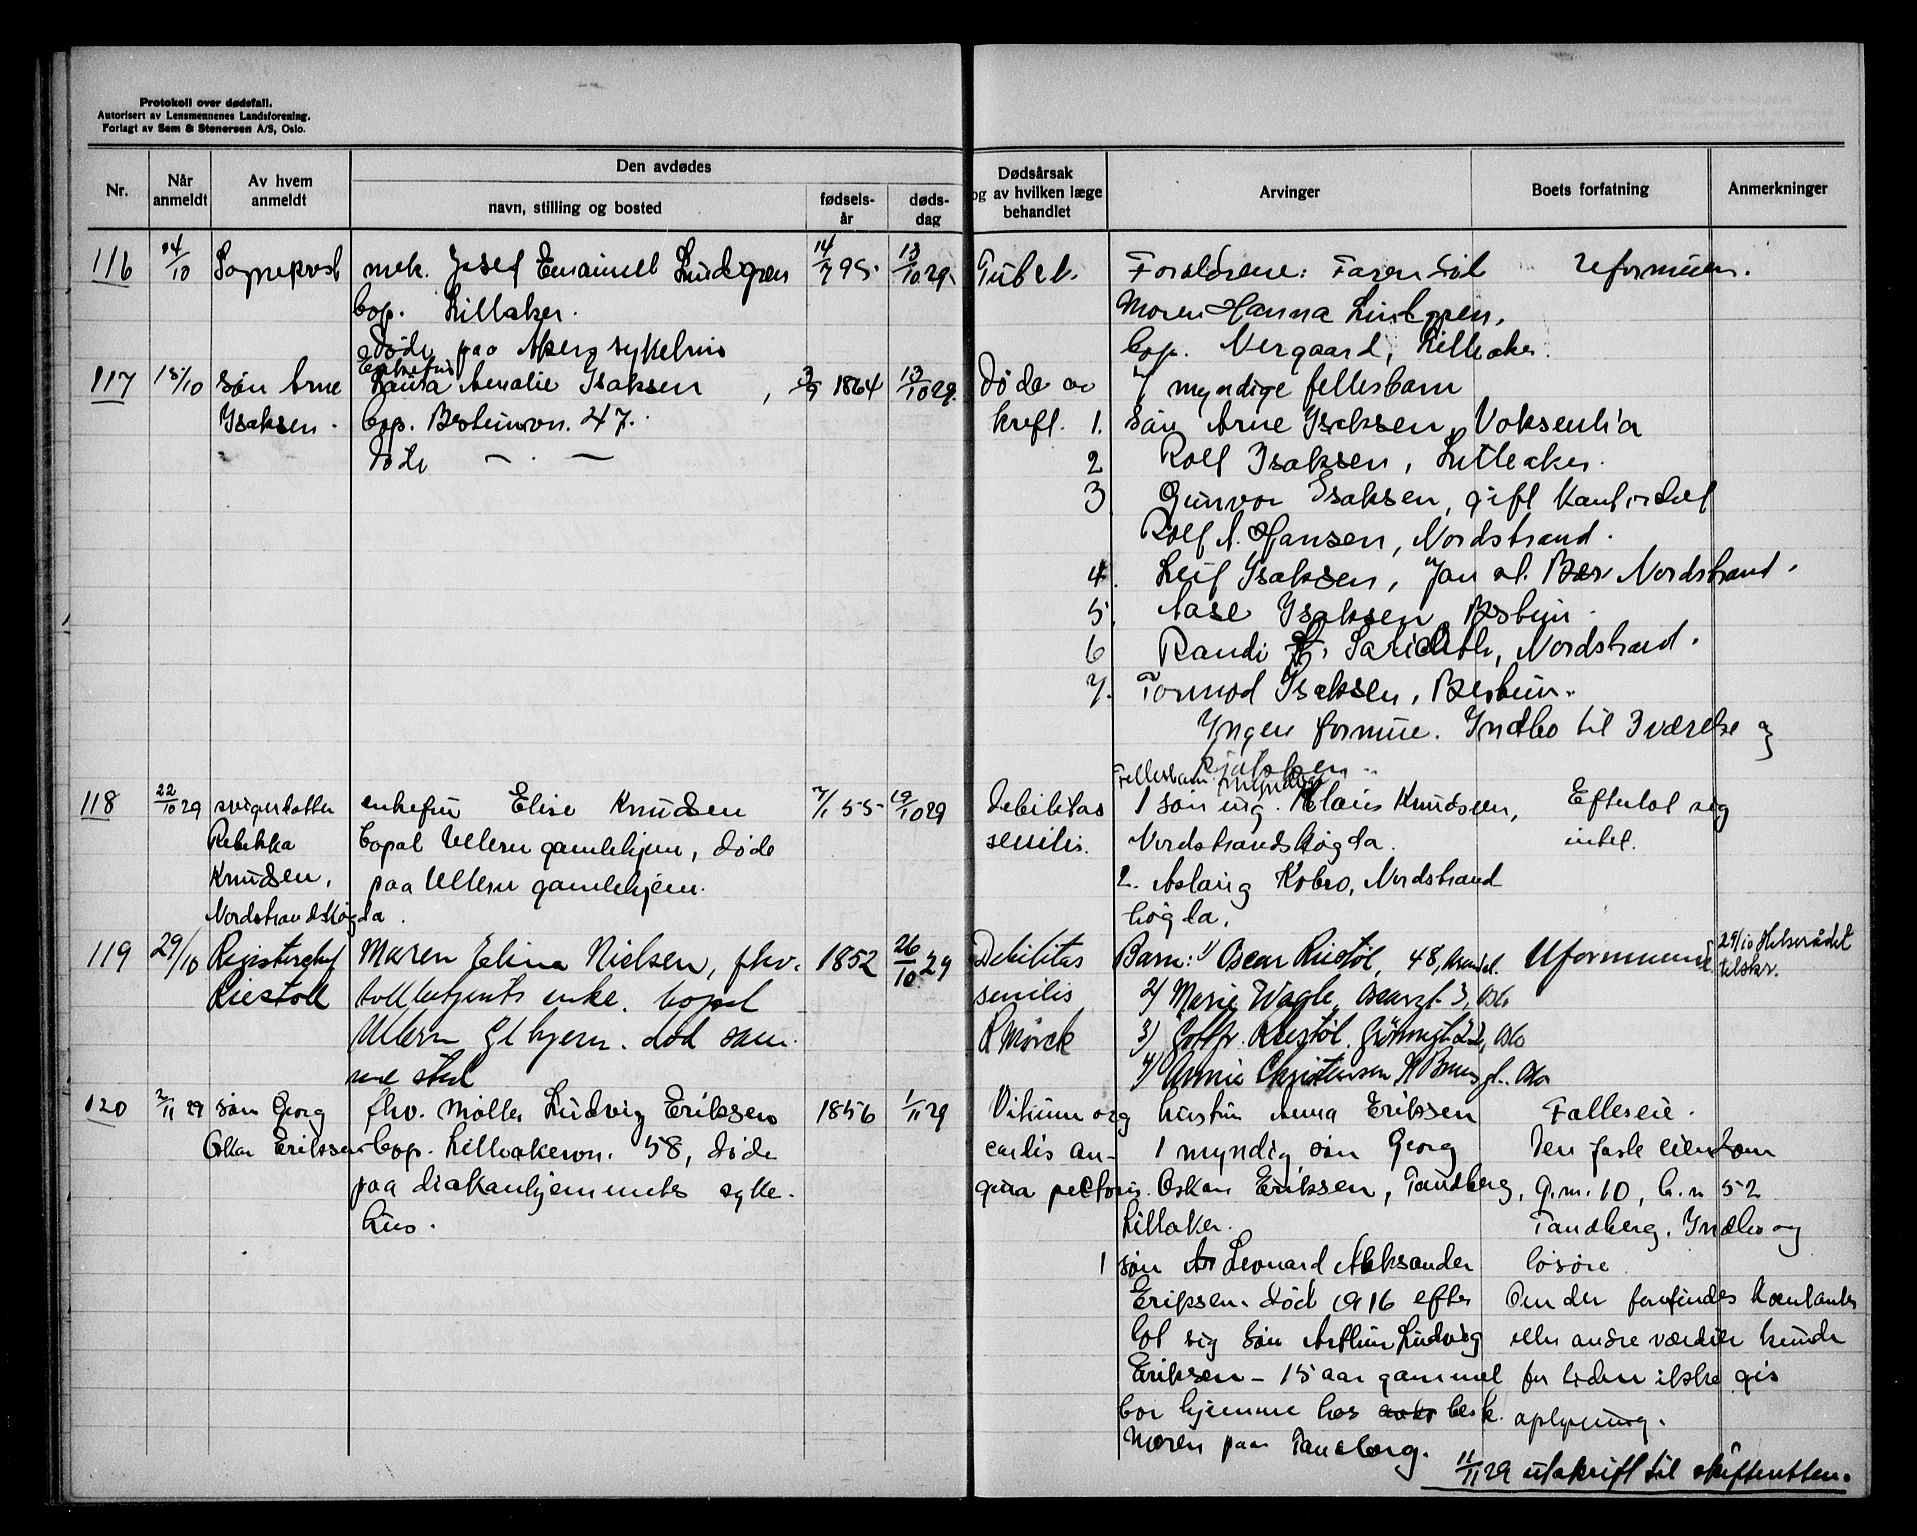 Protokoll over dødsfall.
Autorisert av Lensmennenes Landsforening.
Forlagt av Sem & Stenersen A/S, Oslo.
Nr.
Når anmeldt
Av hvem anmeldt
Den avdødes
navn, stilling og bosted
fødsels-år
døds-dag
Dødsårsak og av hvilken læge behandlet
Arvinger
Boets forfatning
Anmerkninger
116
14/10
Sogneprest
mek. Josef Emanuel Lindgren
bop. Lilleaker.
døde paa Aker sykehus
14/7 95.
13/10 29.
Tub
Foreldrene: Faren död
Moren Hanna Lindgren,
bop. Nergaard, Lilleaker.
uformuen.
117
15/10
sön Arne
Isaksen.
Enkefru
Laura Amalie Isaksen,
bop. Bestumvn. 47.
döde — . —
3/9 1864
13/10 29.
Döde av
kreft.
7 myndige fellesbarn
1. sön Arne Isaksen, Voksenlia
2 Rolf Isaksen, Lilleaker.
3 Gunvor Isaksen, gift
Rolf A. Hansen, Nordstrand.
4. Leif Isaksen, Nordstrand.
5. Aase Isaksen, Bestum.
6 Randi Nordstrand.
7. Tormod Isaksen, Bestum.
Ingen formue. Indbo til 3 værelse og
kjökken..
118
22/10 29
svigerdatter
Rebekka
Knudsen,
Nordstrandshögda.
enkefru Elise Knudsen
bopal Ullern gamlehjem, döde
paa Ullern gamlehjem.
7/1 55
19/10 29
Debilitas
senilis.
Fellesbarn: myndige
1 sön ing. Klaus Knudsen,
Nordstrandshögda.
2. Aslaug Kobro, Nordstrand
högda.
Efterlot sig
intet.
119
29/10
Riestöll
Maren Elina Nielsen, fhv.
tollbetjents enke. bopæl
Ullern Gl hjem. död sam-
me sted
1852
26/10 29
Debilitas
senilis
R Mörck
Barn: 1/ Oscar Riestöl, 48,
2/ Marie Wagle, Oscarsgt. 3, Oslo
3) Riestöl. Oslo
4) Annie Christensen Oslo
Uformuende.
29/10 Helserådet
tilskr.
120
2/11 29
sön Georg
Oskar Eriksen
fhv. Möller Ludvig Eriksen
bop. Lilleakervn. 58, döde
paa diakonhjemmets syke-
hus.
1856
1/11 29
Vitium org
cordis an-
gina pectoris.
hustru Anna Eriksen
1 myndig sön Georg
Oskar Eriksen, Tandberg,
Lilleaker.
1 sön Leonard Aleksander
Eriksen död 1916 efter
lot sig sön Arthur Ludvig
Eriksen – 15 aar gammel
bor hjemme hos best.
moren paa Tandberg.
Felleseie.
Den faste eiendom
G.m. 10, b.n 52
Tandberg. Indbo og
lösöre.
Om der forefindes kontanter
eller andre værdier kunde
for tiden ikke gis
oplysning.
11/11 29 utskrift til skifteretten.